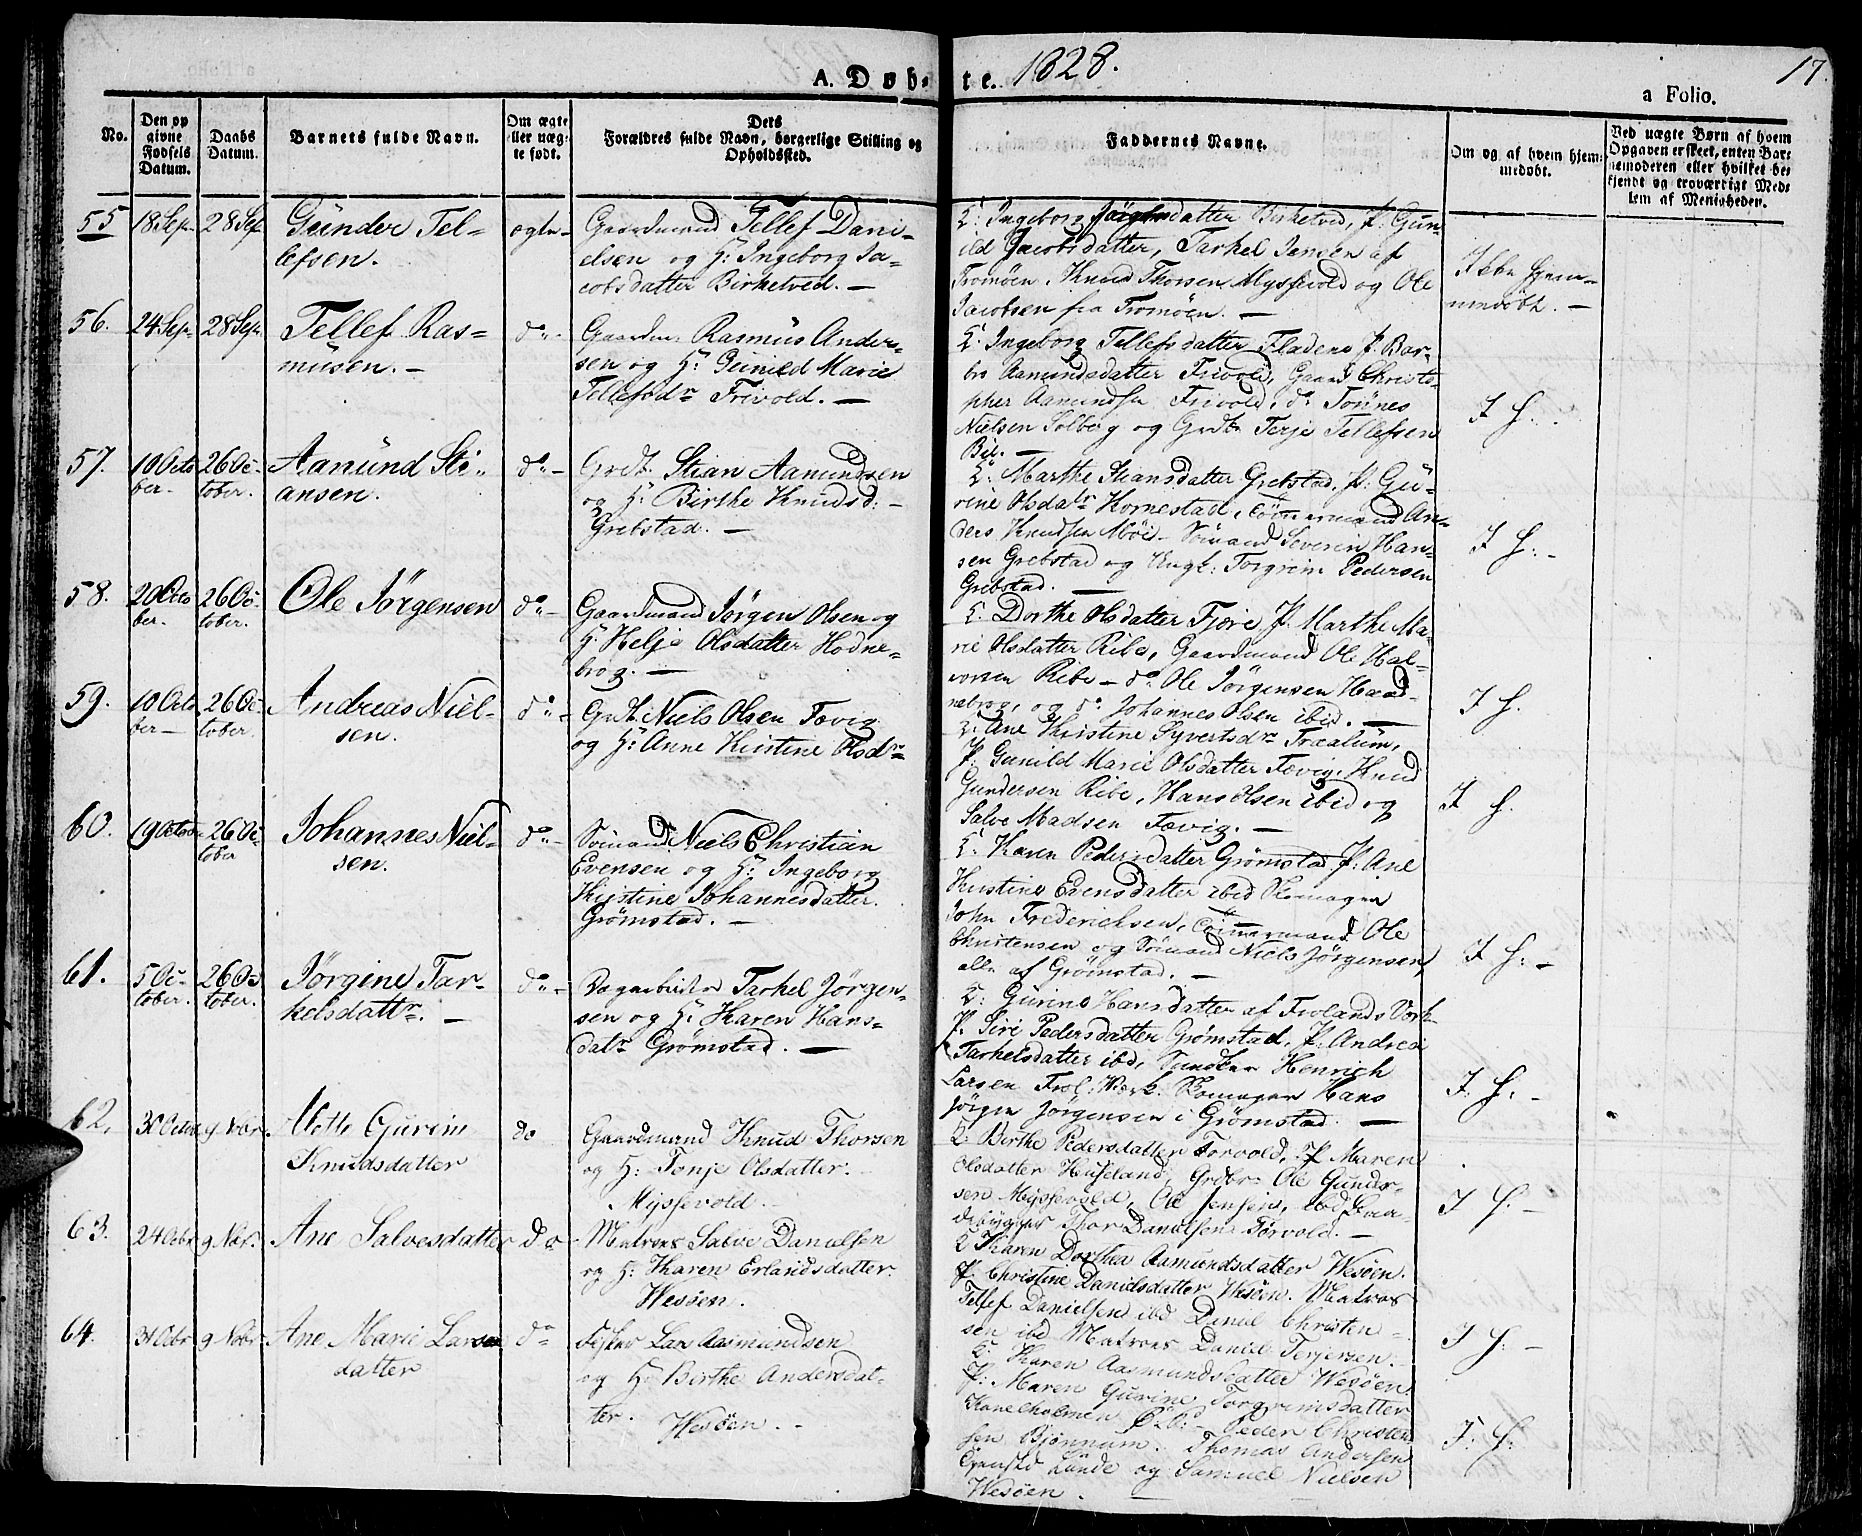 A. Døb-te. 1828.
17.
a Folio.
No.
Den op
givne
Fødsels
Datum.
Daabs
Datum.
Barnets fulde Navn.
Om ægte
eller uæg-
te født.
Dets
Forældres fulde Navn, borgerlige Stilling og
Opholdssted.
Faddernes Navne.
Om og af hvem hjem-
medøbt.
Ved uægte Børn af hvem
Opgaven er skeet, enten Bar-
nemoderen eller hvilket be-
kjendt og troværdigt Med-
lem af Menigheden.
55
18 Sep.
28 Sep
Günder Tel-
lefsen.
ægte
Gaardmand Tellef Dani-
elsen og H: Ingeborg Ja-
cobsdatter Birketved. —
Ingeborg Jörgensdatter Birketved, P. Gun-
ild Jacobsdatter, Tarkel Jensen af
Tromöen, Knud Thorsen Myssevold og Ole
Jacobsen fra Tromöen. —
Ikke hjem-
medöbt. —
56.
24 Sep.
28 Sep.
Tellef Ras-
müsen. —
do
Gaardm. Rasmüs Ander-
sen og H: Gunild Marie
Tellefsdr Frivold. —
Ingeborg Tellefsdatter Fladen P. Bar-
bro Aamundsdatter Frivold, Gaardm. Christo-
pher Aamundsen Frivold, do Tönnes
Nielsen Solberg og Grdb. Terje Tellefsen
Bie. —
I H.
57.
10 Octo
ber.
26 Oc-
tober.
Aamünd Sti-
ansen.
do —
Grdb. Stian Aamundsen
og H: Birthe Knudsd: —
Grebstad. —
Marthe Stiansdatter Grebstad. P: Gü-
rine Olsdatr Kornestad, Tömmermand An-
ders Knudsen Möie — Sömand Severin Han-
sen Grebstad og Ungk: Torgrim Pedersen
Grebstad. —
I H: —
58.
20 Octo
ber.
26 Oc-
tober.
Ole Jörgensen
do —
Gaardmand Jörgen Olsen og
H: Helje Olsdatter Hodne-
brog. —
Dorthe Olsdatter Fjære, P. Marthe Ma-
rie Olsdatter Ribe, Gaardmand Ole Hal-
vorsen Ribe — do Ole Jörgensen Haad-
nebrog, og do Johannes Olsen ibid. —
I H.
59.
10 Octo
ber —
26 Oc-
tober.
Andreas Niel-
sen.
do —
Grdb. Niels Olsen Fævig
og H: Anne Kirstine Olsdr
Ane Christine Syvertsdr Træalüm,
P: Gunild Marie Olsdatter Fævig, Knud
Gundersen Ribe, Hans Olsen ibid og
Salve Madsen Fævig. —
I H.
60.
19 Octobr
26 Oc-
tober
Johannes Niel-
sen.
do —
Sömand Niels Christian
Evensen og H: Ingeborg
Kirstine Johannesdatter.
Grömstad. —
Karen Pedersdatter Grömstad P: Ane
Kirstine Evensdatter ibid Skomager
John Frederichsen, Tömmermand Ole
Christensen og Sömand Niels Jörgensen
alle af Grömstad. —
I H: —
61.
5 Oc-
tober.
26 Oc
tober.
Jörgine Tar-
kelsdattr. —
do —
Dagarbeider Tarkel Jörgen-
sen og H: Karen Hans-
datr Grömstad. —
Gurine Hansdatter af Frolands Værk
P. Siri Pedersdatter Grömstad, P: Andrea
Tarkelsdatter ibd, Henrich
Larsen Frol: Værk. Skomager Hans
Jörgen Jörgensen i Grömstad. —
I. H: —
62.
30 Octbr
9 Nvbr.
Mette Gurine
Knudsdatter
do
Gaardmand Knud Thorsen
og H: Tonje Olsdatter.
Myssevold.
Birthe Pedersdatter Torvold, P Maren
Olsdatter Huseland, Grdbr Ole Gunder-
sen Myssevold, Ole Jensen, ibd, Gaar-
debryger Thor Danielsen Torvold. —
I H. —
63.
24 Octbr
9 Nvbr.
Ane Salvesdatter
do
Matros Salve Danielsen
og H: Karen Erlandsdatter.
Wesöen.
Karen Dorthea Aamundsdatter Wesöen.
P. Christine Danielsdatter Wesöen. Matros
Tellef Danielsen ibd Daniel Christen-
sen ibd Matros Daniel Terjersen.
I H: —
64.
31 Octbr
9 Nobr
Ane Marie Larsen
datter
do
Fisker Lars Aasmundsen
og H: Birthe Andersdat-
ter. Wesöen. —
Karen Aasmundsdatter Wesöen
P: Maren Gurine Torgrimsdatter
Kanelholmen Peder Christen
sen Bjönnum. Thomas Andersen
Lunde og Samuel Nielsen
Wesöen.
I: H: